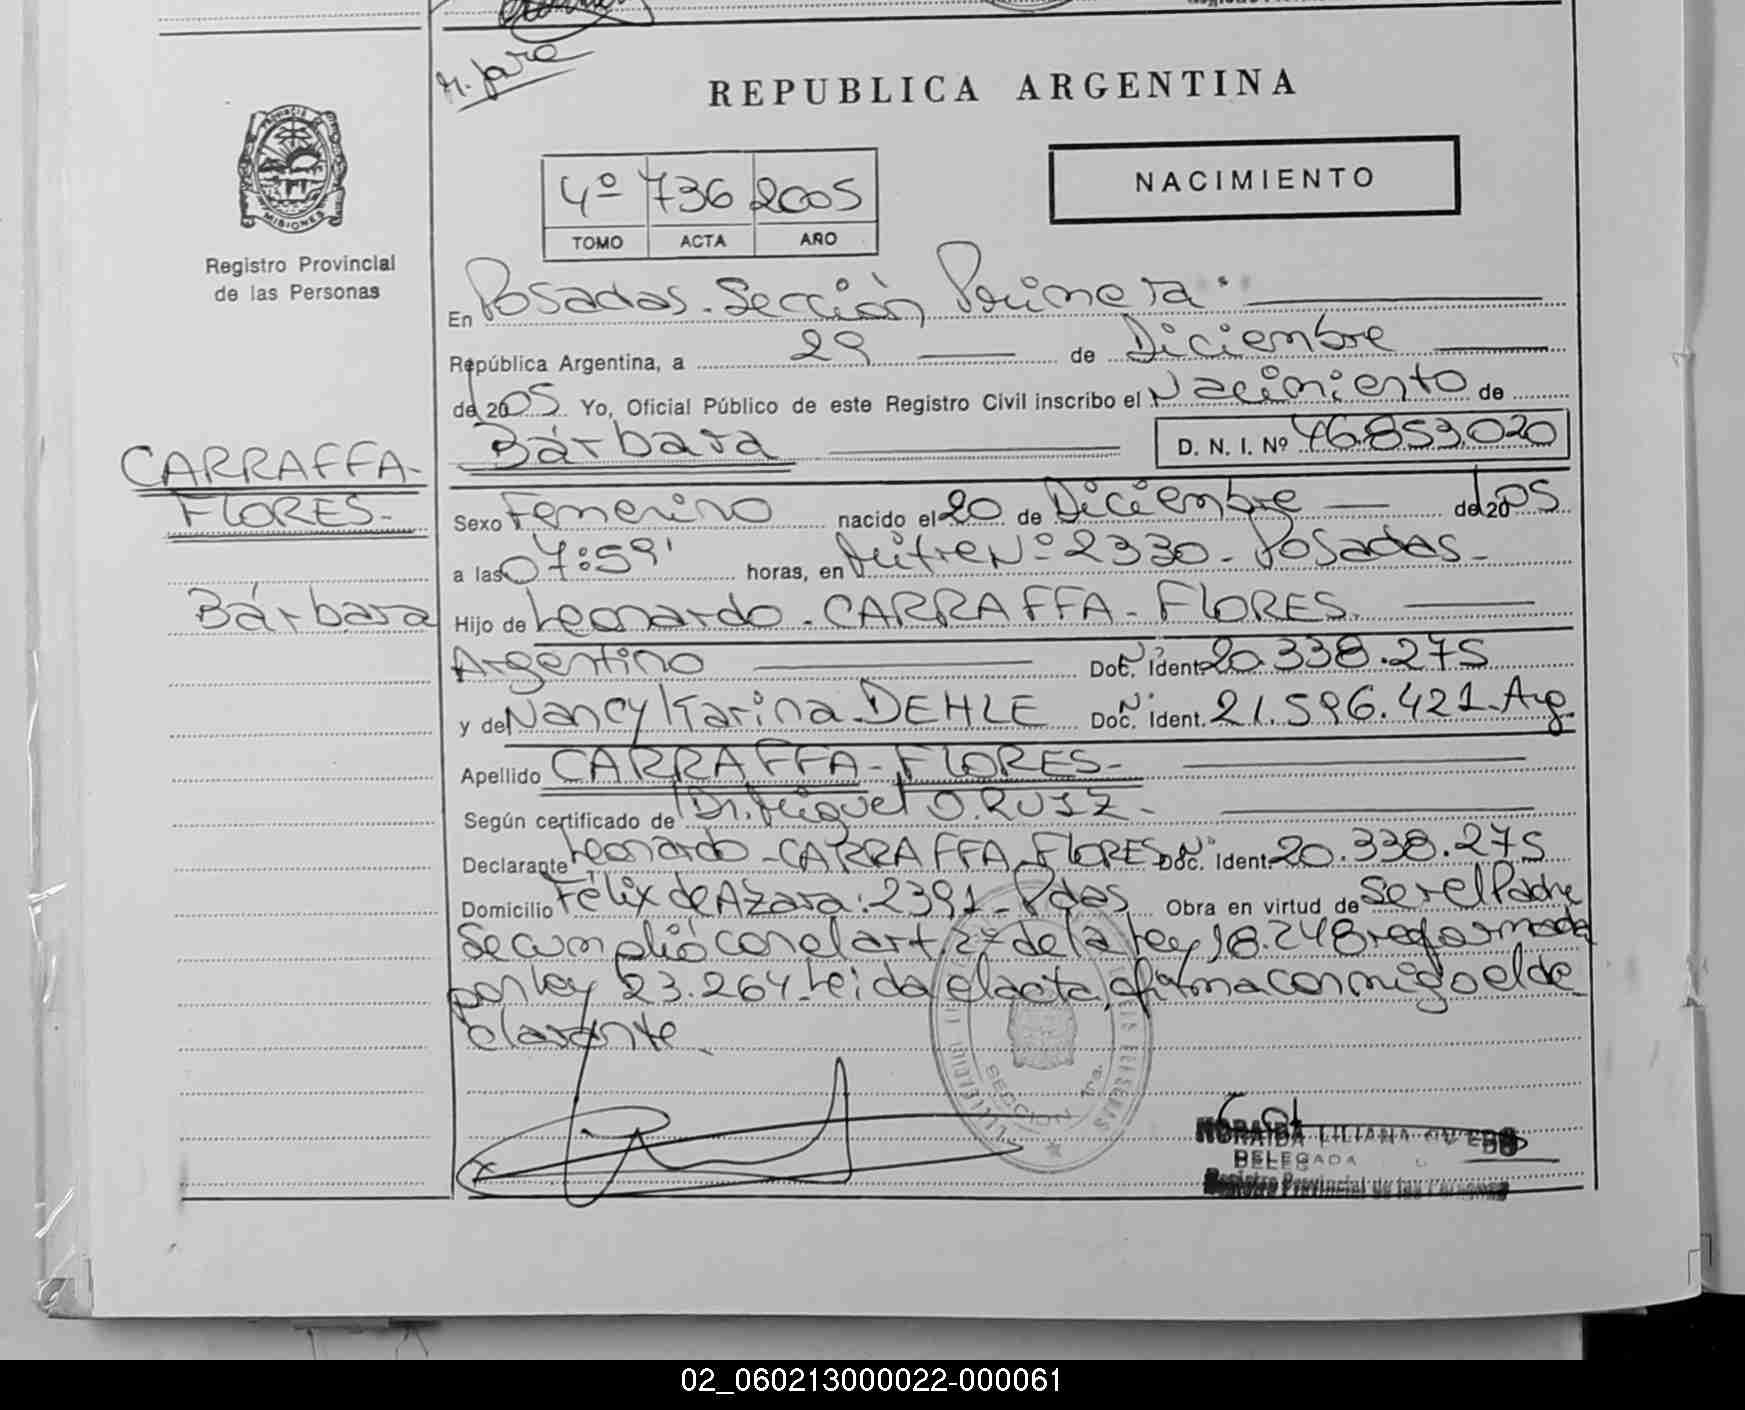 REPUBLICA ARGENTINA
PROVINCIA DE
MISIONES
Registro Provincial
de las Personas
NACIMIENTO
4º 736 2005
TOMO ACTA AÑO
En Posadas. Sección Primera.
República Argentina, a 29 de Diciembre
de 2005 Yo, Oficial Público de este Registro Civil inscribo el Nacimiento de
Bárbara D. N. I. Nº 46.853.020
CARRAFFA-
FLORES.-
Bárbara
Sexo Femenino nacido el 20 de Diciembre de 2005
a las 07:59' horas, en Mitre Nº 2330- Posadas-
Hijo de Leonardo. CARRAFFA- FLORES.
Argentino Doc. Nº ident. 20.338.275
y de Nancy Karina DEHLE Doc. Nº ident. 21.596.421-Arg
Apellido CARRAFFA-FLORES-
Según certificado de Dr. Miguel O. RUIZ-
Declarante Leonardo-CARRAFFA-FLORES Doc. Nº ident. 20.338.275
Domicilio Félix de Azara: 2391-Pdas Obra en virtud de Ser el Padre
Se cumplió con el art. 27 de la Ley 18.248 reformada
por Ley 23.264. Leida el acta, firma conmigo el de
clarante.
SECCION 1ra.
NORAIDA LILIANA OVIEDO
DELEGADA
Registro Provincial de las Personas
02_060213000022-000061